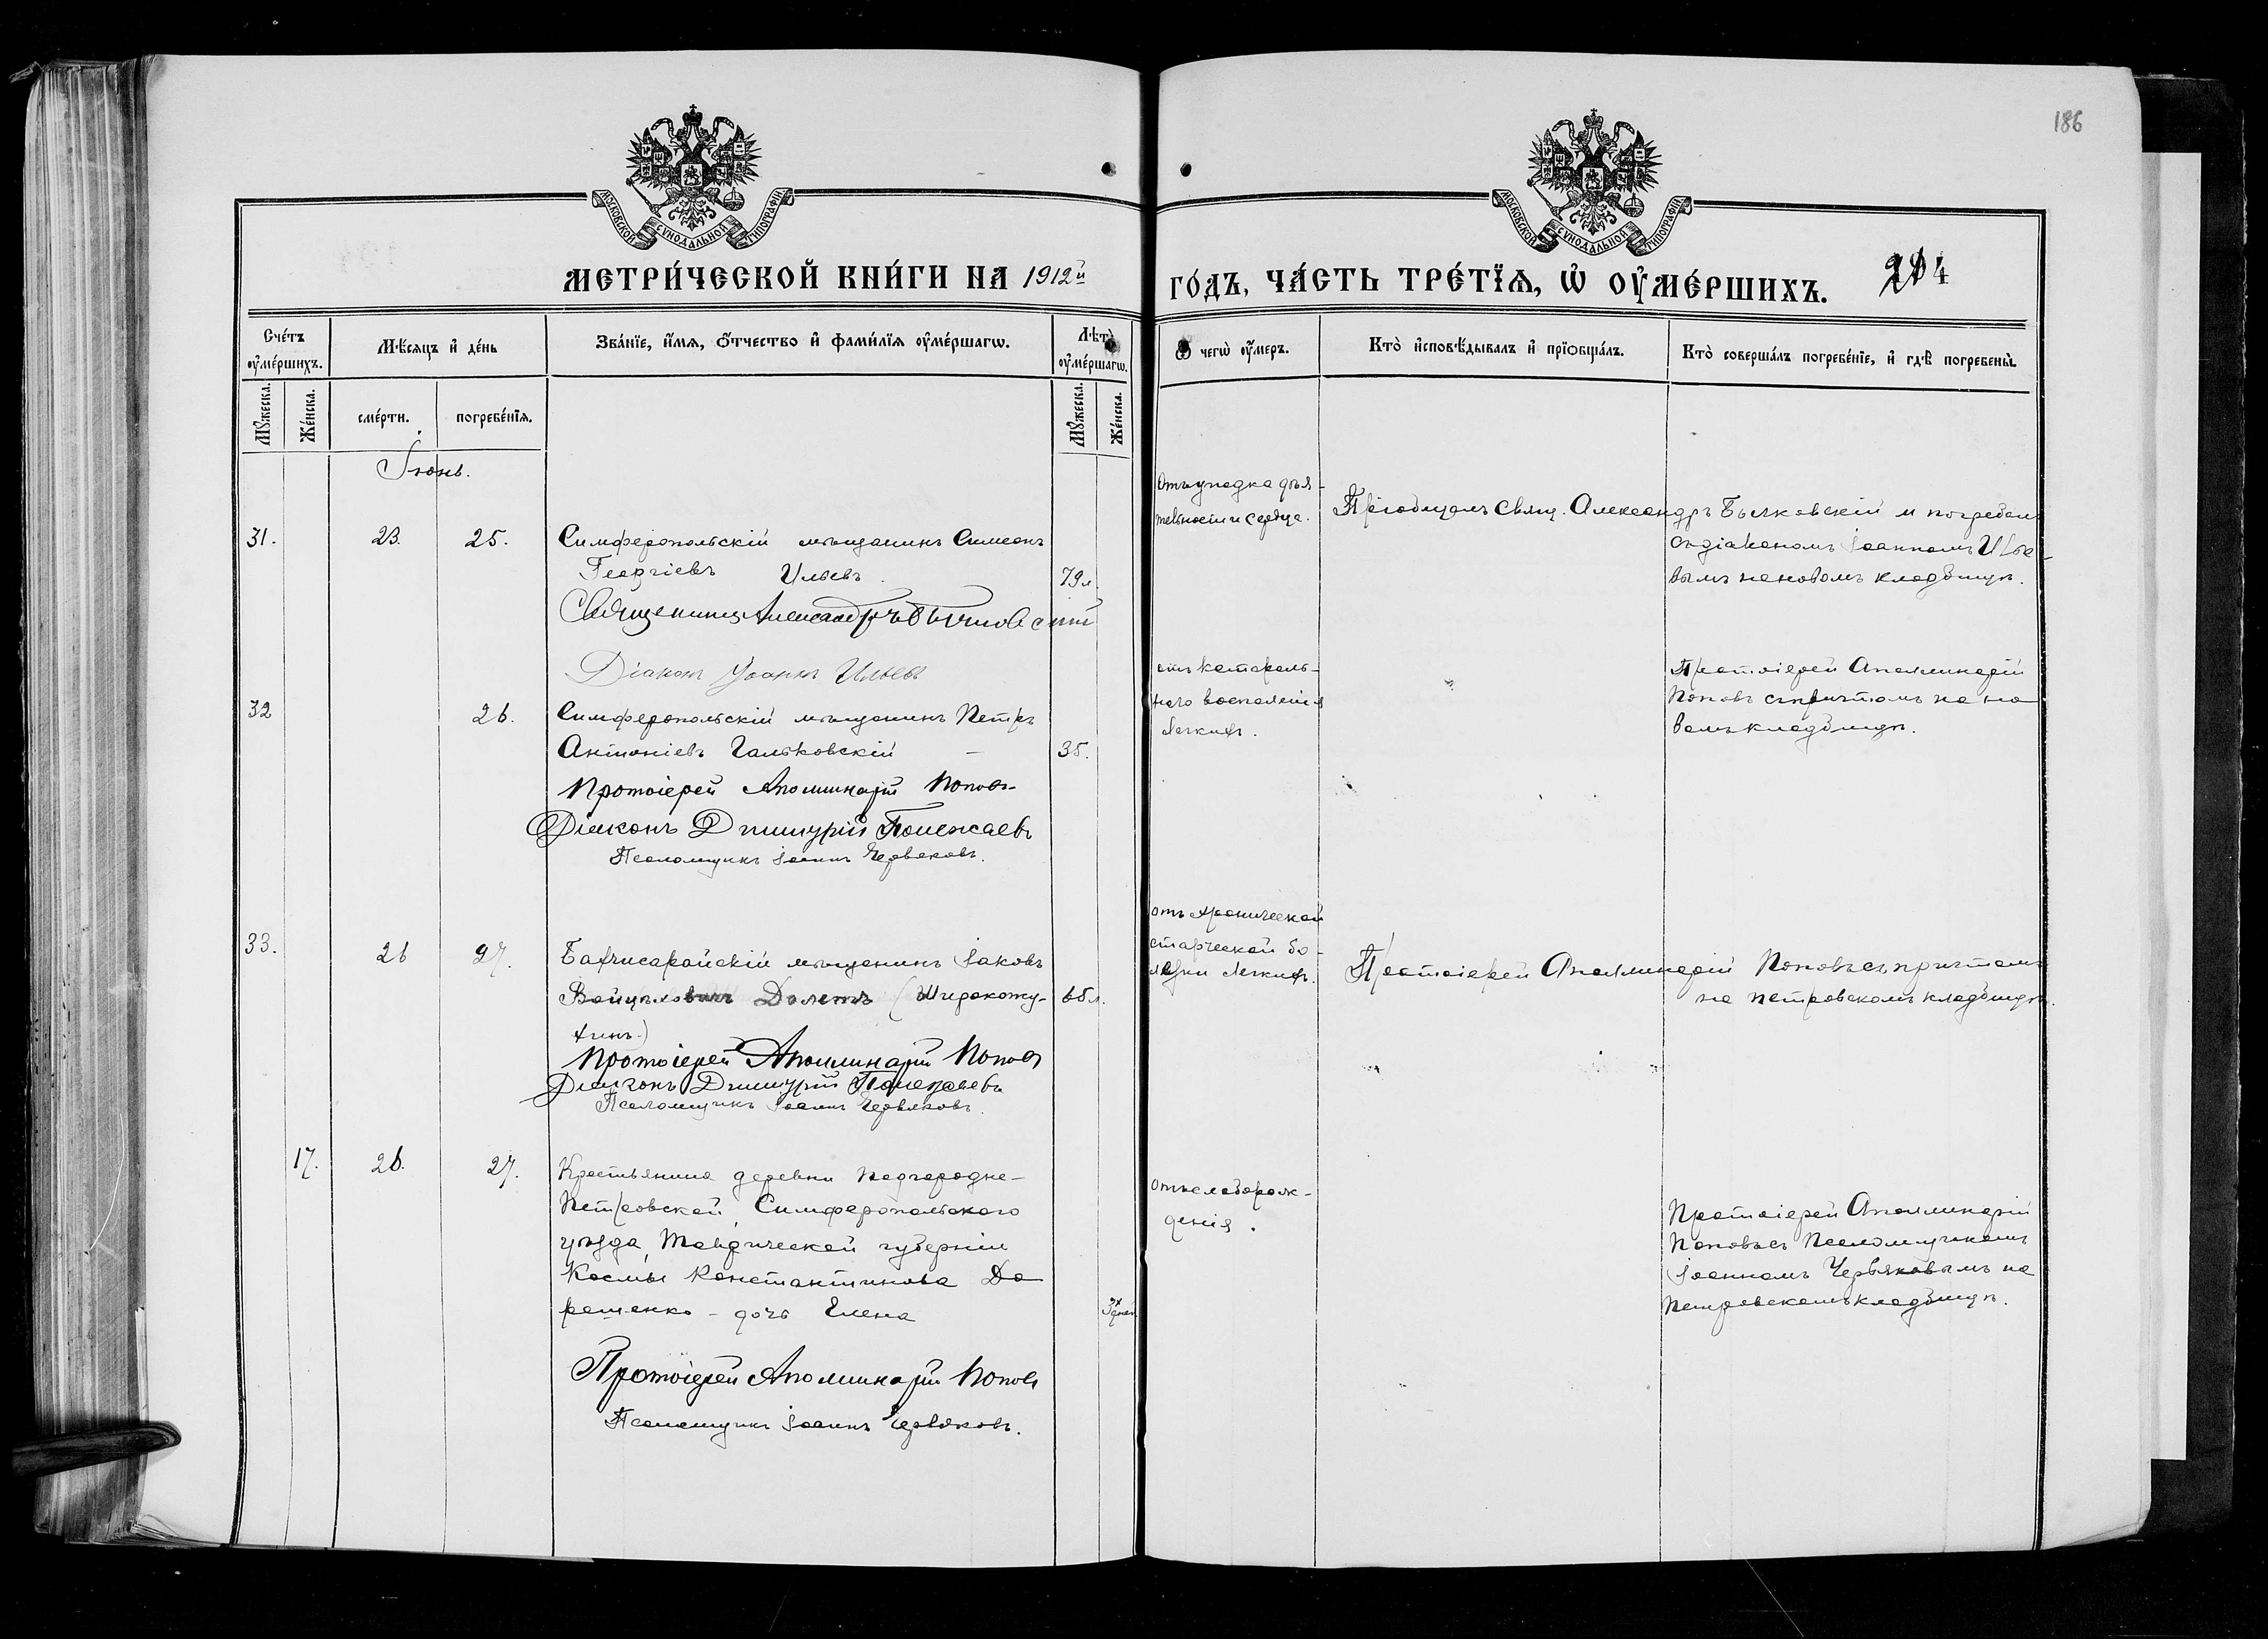 186
МОСКОВСКОЙ СѴНОДАЛЬНОЙ ТИПОГРАФІИ
МОСКОВСКОЙ СѴНОДАЛЬНОЙ ТИПОГРАФІИ
МЕТРИ́ЧЕСКОЙ КНИ́ГИ НА 1912й
ГО́ДЪ, ЧА́СТЬ ТРЕ́ТІѦ, Ѡ ОУ҆МЕ́РШИХЪ.
204
Сче́тъ оу҆ме́ршихъ.
Мѣ́сяцъ и҆ де́нь
Зва́нїе, и҆́мѧ, ѻ҆́тчество и҆ фами́лїѧ оу҆ме́ршагѡ.
Лѣ́тѡ оу҆ме́ршагѡ.
Ѿ чегѡ̀ оу҆́меръ.
Кто̀ и҆сповѣ́дывалъ и҆ прїобща́лъ.
Кто̀ соверша́лъ погребе́нїе, и҆ гдѣ̀ погребены̀.
Мꙋ́жеска.
Же́нска.
сме́рти.
погребе́нїѧ.
Мꙋ́жеска.
Же́нска.
Іюнь.
31.
23.
25.
Симферопольскій мѣщанинъ Симеонъ
Георгіевъ Ильевъ.
79 л.
Священникъ Александръ Бычковскій
Діаконъ Іоаннъ Ильевъ
Отъ упадка дѣя-
тельности сердца.
Пріобщалъ Свящ. Александръ Бычковскій и погребалъ
съ діакономъ Іоанномъ Илье-
вымъ на новомъ кладбищѣ.
32
26.
Симферопольскій мѣщанинъ Петръ
Антоніевъ Гальковскій
35.
Протоіерей Аполлинарій Поповъ
Діаконъ Димитрій Полежаевъ
Псаломщикъ Іоаннъ Червяковъ.
отъ катараль-
наго воспаленія
легкихъ.
Протоіерей Аполлинарій
Поповъ съ причтомъ на но-
вомъ кладбищѣ.
33.
26
27.
Бахчисарайскій мѣщанинъ Іаковъ
Долетъ (Широкожу-
хинъ)
66 л.
Протоіерей Аполлинарій Поповъ
Діаконъ Димитрій Полежаевъ
Псаломщикъ Іоаннъ Червяковъ.
отъ хронической
старческой бо-
лѣзни легкихъ.
Протоіерей Аполлинарій Поповъ съ причтомъ
на Петровскомъ кладбищѣ.
17.
26.
27.
Крестьянина деревни Подгородне-
Петровской, Симферопольского
уѣзда, Таврической губерніи
Космы Константинова До
рошенко - дочь Елена
3х дней
Протоіерей Аполлинарій Поповъ
Псаломщикъ Іоаннъ Червяковъ.
отъ слаборож-
денія.
Протоіерей Аполлинарій
Поповъ съ Псаломщикомъ
Іоанномъ Червяковымъ на
Петровскомъ кладбищѣ.